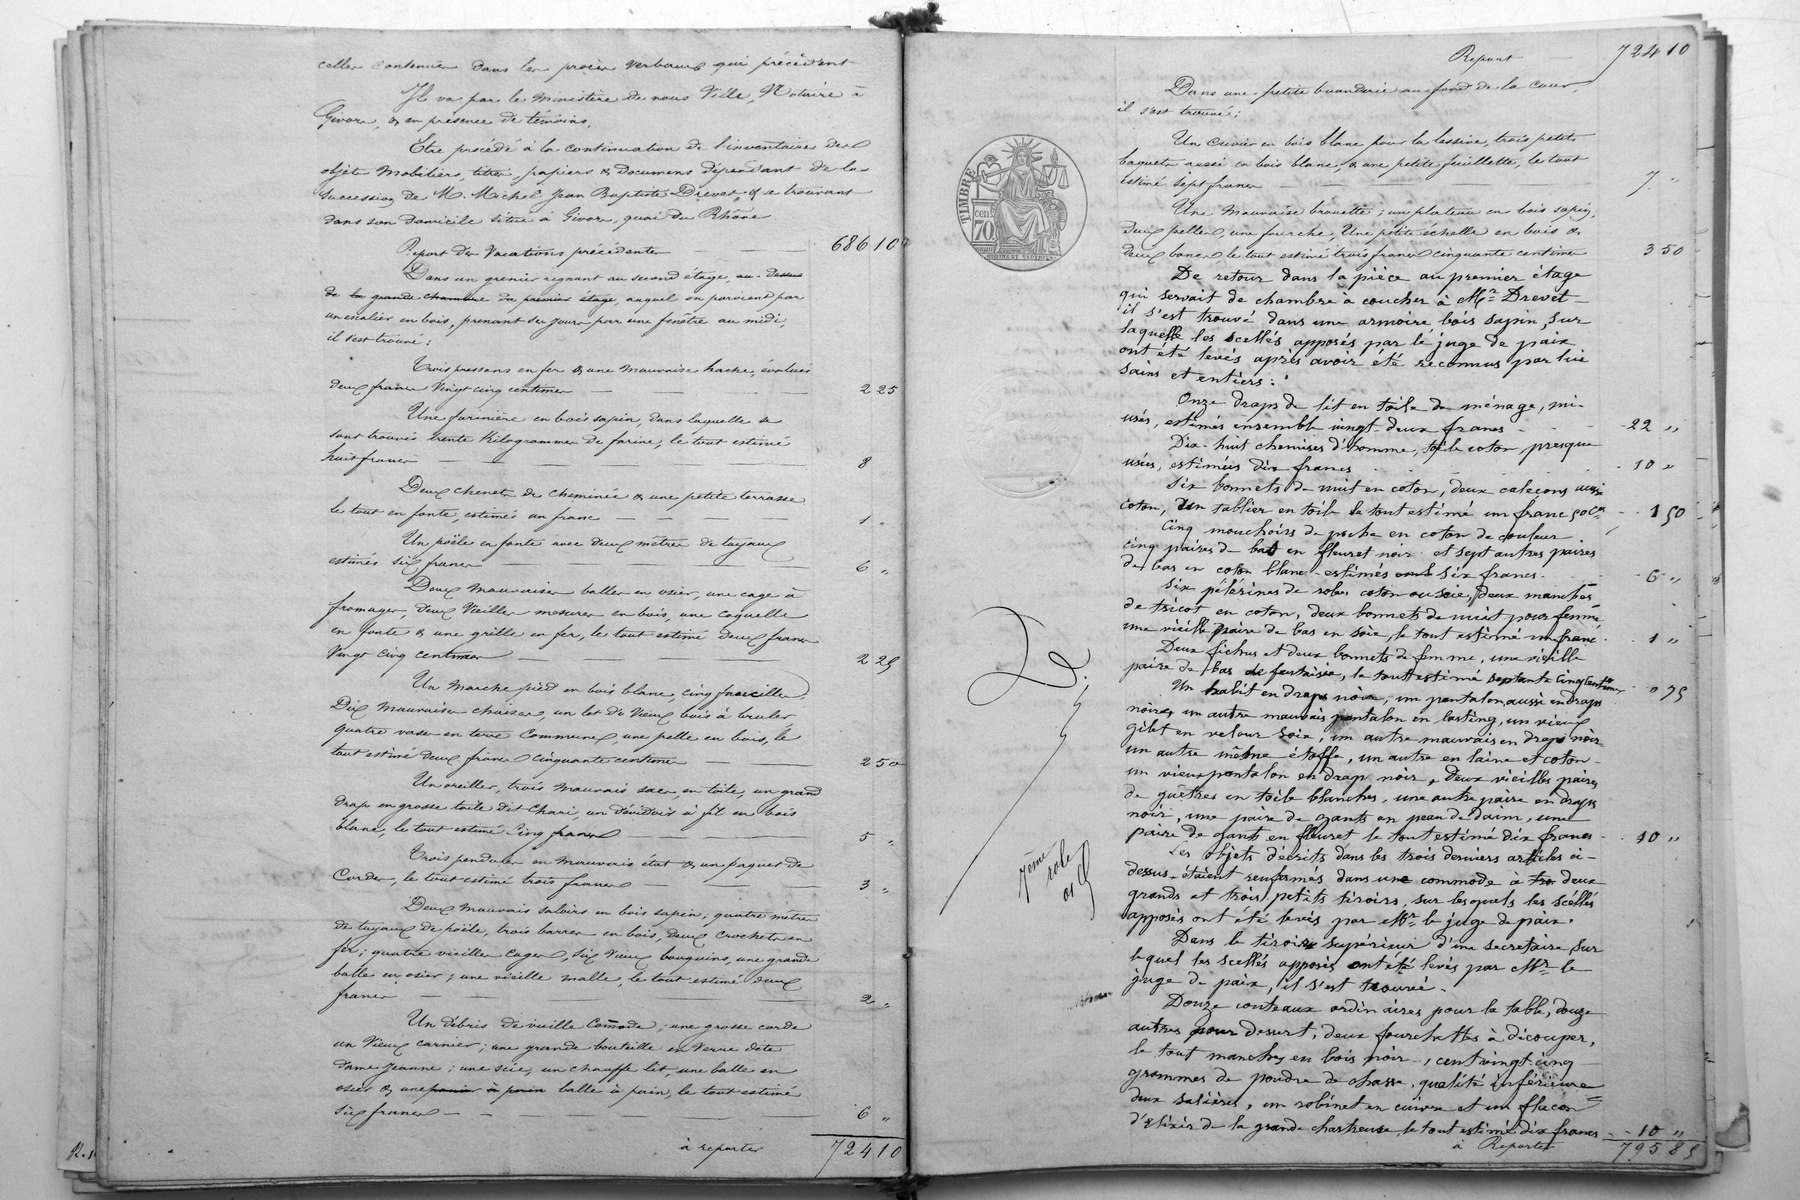 celles contenues dans les procès verbaux qui précèdent
Il va par le ministère de nous Ville, Notaire à
Givors, & en présence de témoins,
Etre procédé à la continuation de l'inventaire des
objets mobiliers, titres, papiers & documens dépendant de la
succession de M. Michel Jean Baptiste Drevet, & se trouvant
dans son domicile situé à Givors, quai du Rhône
Report des Vacations précédentes 686 10
Dans un grenier regnant au second étage, au-dessus
de la grande chambre du premier étage, auquel on parvient par
un escalier en bois, prenant ses jours par une fenêtre au midi,
il s'est trouvé :
Trois pressons en fer & une mauvaise hache, évalués
deux francs vingt cinq centimes 2 25
Une farinière en bois sapin, dans laquelle se
sont trouvés trente Kilogrammes de farine, le tout estimé
huit francs 8
Deux chenets de cheminée & une petite terrasse
le tout en fonte, estimés un franc 1 "
Un poële en fonte avec deux mètres de tuyaux
estimés six francs 6 "
Deux mauvaises balles en osier, une cage à
fromages, deux vieilles mesures en bois, une coquelle
en fonte & une grille en fer, le tout estimé deux francs
vingt cinq centimes 2 25
Un marche pied en bois blanc, cinq faucilles,
Dix mauvaises chaises, un lot de vieux bois à bruler
quatre vases en terre commune, une pelle en bois, le
tout estimé deux francs cinquante centimes 2 50
Un oreiller, trois mauvais sacs en toile, un grand
drap en grosse toile dit Chari, un dévidoir à fil en bois
blanc, le tout estimé cinq francs 5 "
Trois pendules en mauvais état & un paquet de
Cordes, le tout estimé trois francs 3 "
Deux mauvais saloirs en bois sapin, quatre mètres
de tuyaux de poële, trois barres en bois, deux crochets en
fer ; quatre vieilles cages, dix vieux bouquins, une grande
balle en osier ; une vieille malle, le tout estimé deux
francs 2 "
Un débris de vieille commode ; une grosse corde
un vieux carnier ; une grande bouteille en verre dite
dame jeanne ; une scie, un chauffe lit, une balle en
osier & une panier à pain balle à pain, le tout estimé
six francs 6 "
à reporter 724 10
Report 724 10
Dans une petite buanderie au fond de la cour,
il s'est trouvé ;
Un cuvier en bois blanc pour la lessive, trois petits
baquets aussi en bois blanc, & une petite feuillette, le tout
estimé sept francs 7 "
Une mauvaise brouette ; un plateau en bois sapin,
deux pelles, une fourche, Une petite échelle en bois &
deux bancs le tout estimé trois francs cinquante centimes 3 50
TIMBRE
70
De retour dans la pièce au premier étage
qui servait de chambre à coucher à Mr. Drevet
il s'est trouvé dans une armoire bois sapin, sur
laquelle les scellés apposés par le juge de paix
ont été levés après avoir été reconnus par lui
sains et entiers :
Onze draps de lit en toile de ménage, mi-
usés, estimés ensemble vingt deux francs 22 "
Dix-huit chemises d'homme, toile coton presque
usées, estimées dix francs 10 "
Six bonnets de nuit en coton, deux caleçons aussi
coton, un tablier en toile le tout estimé un franc 50 c. 1 50
Cinq mouchoirs de poche en coton de couleur
cinq paires de bas en fleuret noir et sept autres paires
de bas en coton blanc estimés six francs 6 "
Six pélérines de robes coton ou soie, deux manches
de tricot en coton, deux bonnets de nuit pour femme
une vieille paire de bas en soie, le tout estimé un franc 1 "
Deux fichus et deux bonnets de femme, une vieille
paire de bas de fantaisie, le tout estimé septante cinq centimes 0 75
Un habit en draps noir, un pantalon aussi en draps
noir, un autre mauvais pantalon en lasting, un vieux
gilet en velour soie, un autre mauvais en drap noir
un autre même étoffe, un autre en laine et coton
un vieux pantalon en drap noir, deux vieilles paires
de guêtres en toile blanches, une autre paire en draps
noir, une paire de gants en peau de daim, une
paire de gants en fleuret le tout estimé dix francs 10 "
7ème
role
Les objets décrits dans les trois derniers articles ci-
dessus étaient renfermés dans une commode à tro deux
grands et trois petits tiroirs, sur lesquels les scellés
apposés ont été levés par Mr. le juge de paix.
Dans le tiroir supérieur d'un secretaire, sur
lequel les scellés apposés ont été levés par Mr. le
juge de paix, il s'est trouvé.
Douze couteaux ordinaires pour la table, douze
autres pour desert, deux fourchettes à découper,
le tout manches en bois noir, cent vingt-cinq
grammes de poudre de chasse, qualité inférieure
deux salières, un robinet en cuivre et un flacon
d'Elixir de la grande chartreuse, le tout estimé dix francs 10 "
à Reporter 795 85